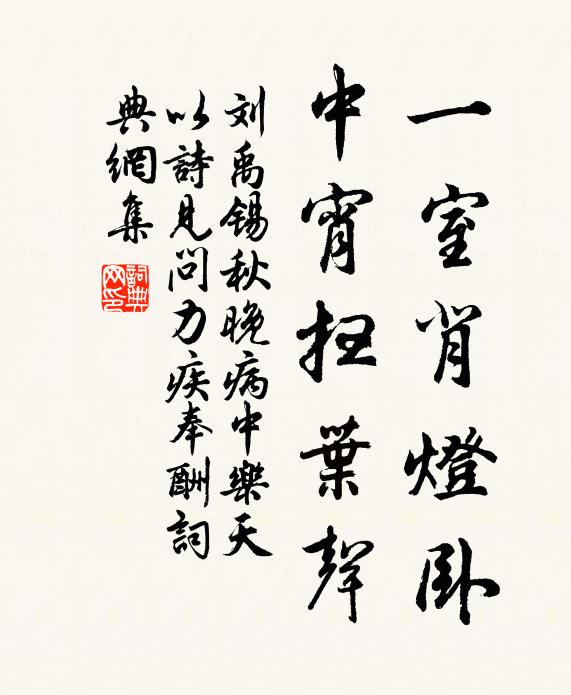 一室背燈臥
中宵掃葉聲
刘禹锡秋晚病中樂天
以詩見問力疾奉酬詞
典網集
詞典
网印